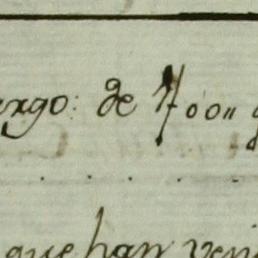 argo: de 700"
que han veni